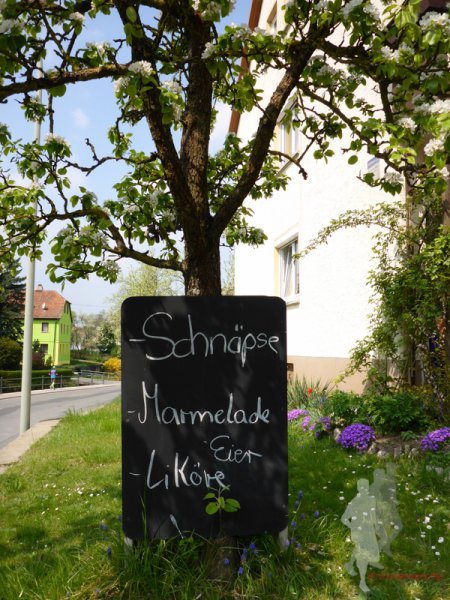 - Schnäpse
- Marmelade
Eier
- Liköre